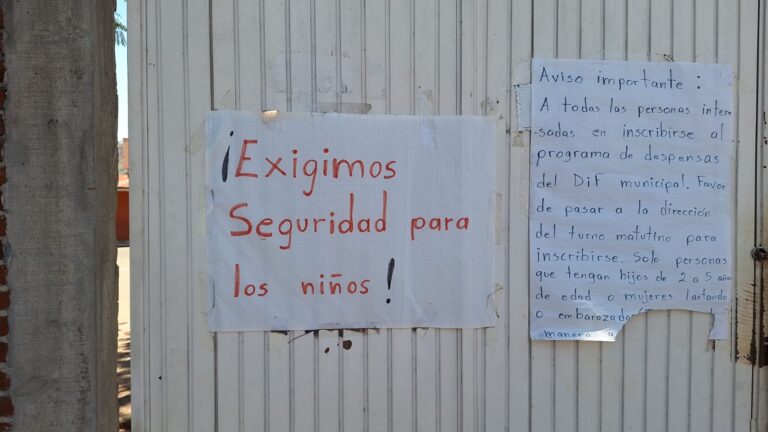 ¡Exigimos
Seguridad para
los niños!
Aviso importante:
A todas las personas intere
-sadas en inscribirse al
programa de despensas
del DiF municipal. Favor
de pasar a la dirección
del turno matutino para
inscribirse. Solo personas
que tengan hijos de 2 a 5 años
de edad o mujeres lactando
o embarazadas
manera